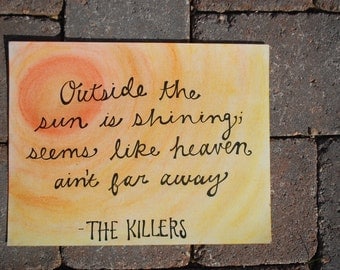 Outside the
sun is shining;
seems like heaven
ain't far away
-THE KILLERS